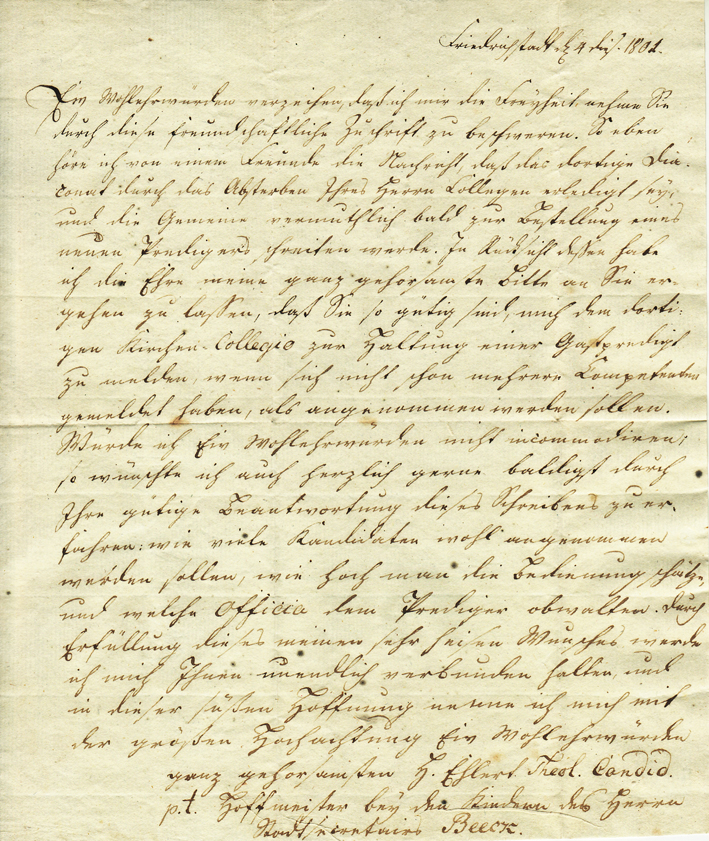 Friedrichstadt d. 4 dis. 1801.
Ew Wohlehrwürden verzeihen, daß ich mir die Freyheit nehme Sie
durch diese freundschaftliche Zuschrift zu beschweren. So eben
höre ich von einem Freunde die Nachricht, daß das dortige Dia-
conat durch das Absterben Ihres Herrn Collegen erledigt sey,
und die Gemeine vermuthlich bald zur Bestellung eines
neuen Predigers schreiten werde. In Rücksicht dessen habe
ich die Ehre meine ganz gehorsamste Bitte an Sie er-
gehen zu lassen, daß Sie so gütig sind, mich dem dorti-
gen Kirchen-Collegio zur Haltung einer Gastpredigt
zu melden, wenn sich nicht schon mehrere Competenten
gemeldet haben, als angenommen werden sollen.
Würde ich Ew Wohlehrwürden nicht incommodiren;
so wünschte ich auch herzlich gerne baldigst durch
Ihre gütige Beantwortung dieses Schreibens zu er-
fahren: wie viele Kandidaten wohl angenommen
werden sollen, wie hoch man die Bedienung schätze,
und welche Officia dem Prediger obwalten. Durch
Erfüllung dieses meines sehr heißen Wunsches werde
ich mich Ihnen unendlich verbunden halten, und
in dieser süßen Hoffnung nenne ich mich mit
der größten Hochachtung Ew Wohlehrwürden
ganz gehorsamsten H. Ehlert. Theol. Candid.
p.t. Hoffmeister bey den Kindern des Herrn
Stadtsecretairs Beeck.